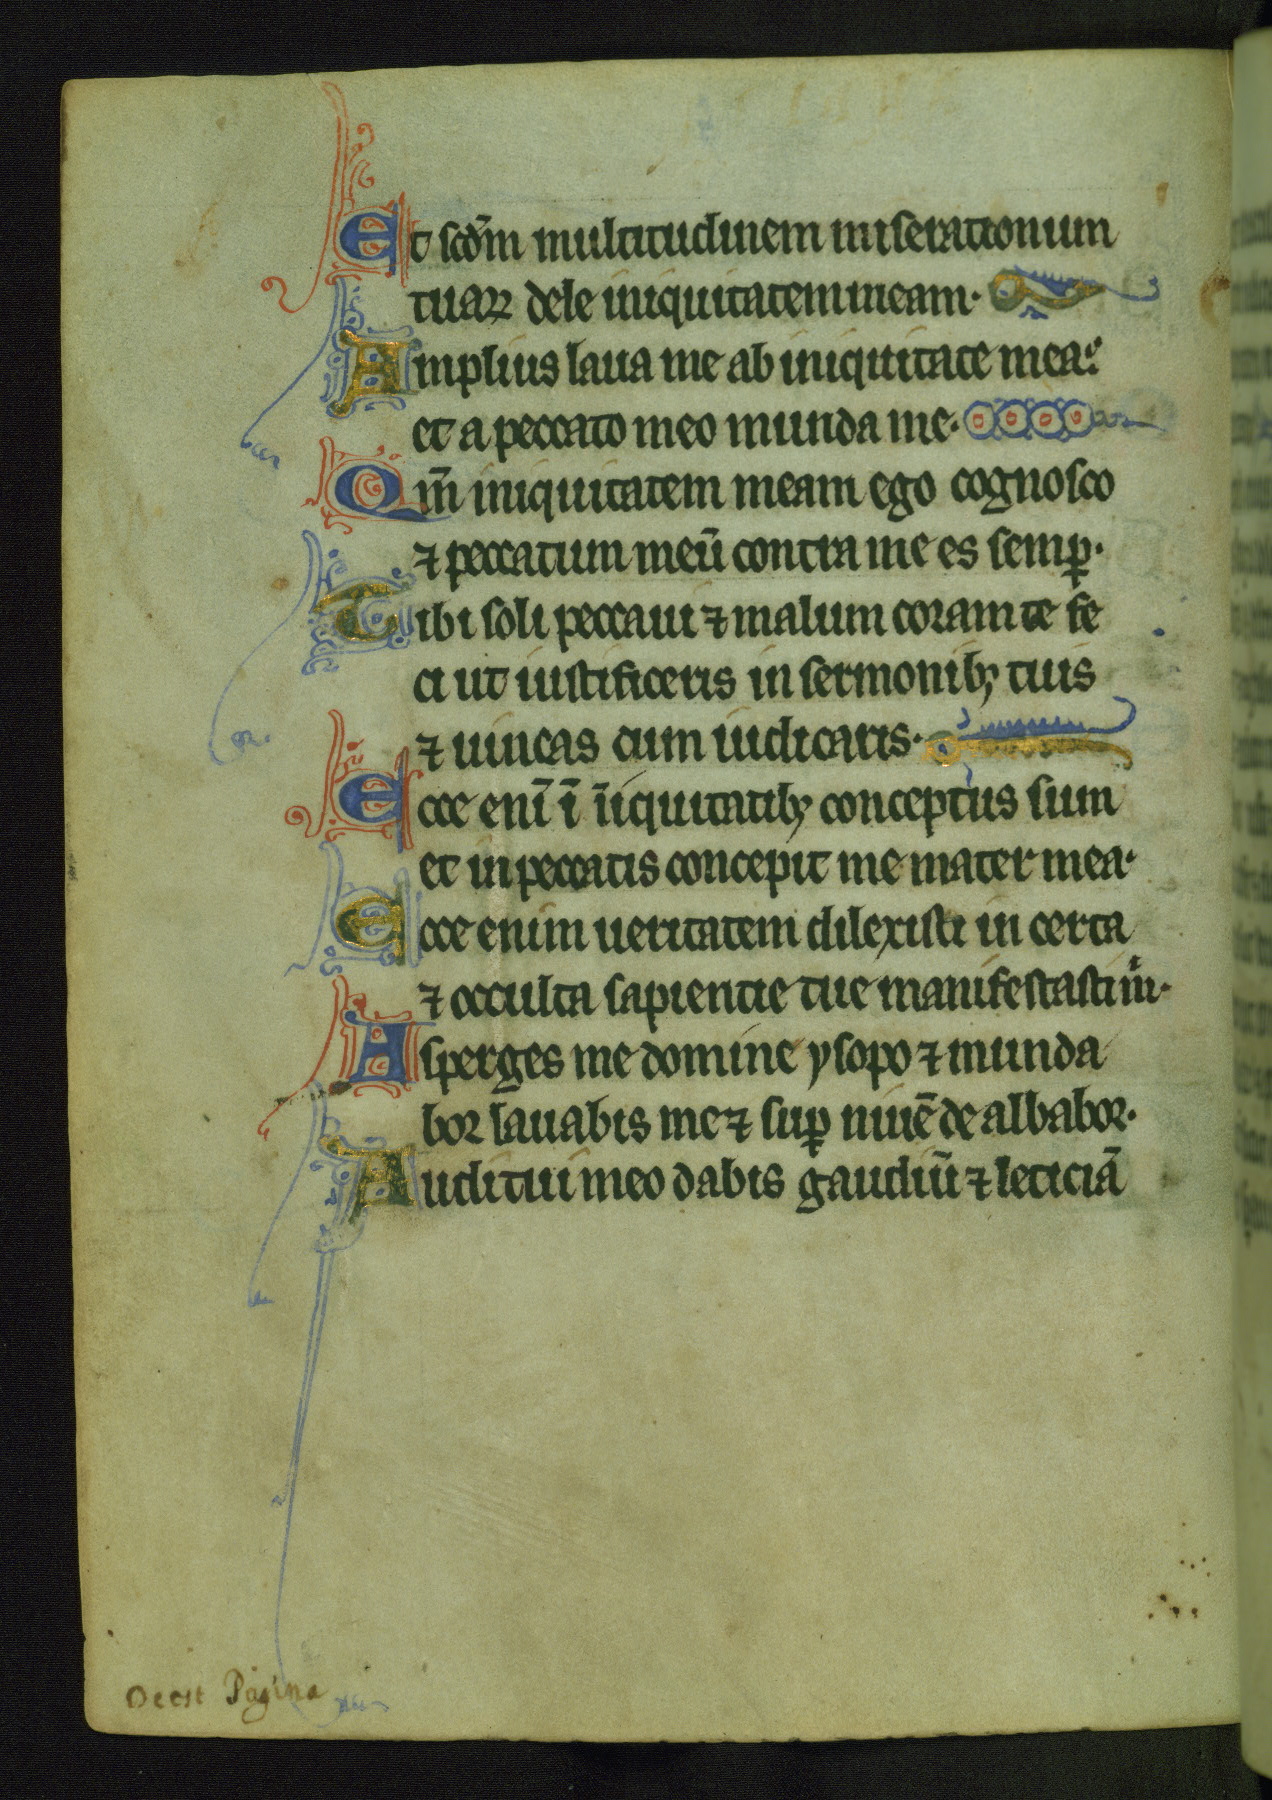 Et scd̄m multitudinem miserationum
tuaꝝ dele iniquitatem meam·
Amplius laua me ab iniquitate mea:
et a peccato meo munda me·
Qm̄ iniquitatem meam ego cognosco
⁊ peccatum meū contra me es semꝑ·
Tibi soli peccaui ⁊ malum coram te fe
ci ut iustificeris in sermonibꝫ tuis
⁊ uincas cum iudicaris·
Ecce enī ī īiquitatibꝫ conceptus sum
et in peccatis concepit me mater mea·
Ecce enim ueritatem dilexisti in certa
⁊ occulta sapientie tue manifestasti m̍·
Asperges me domine ysopo ⁊ munda
bor lauabis me ⁊ suꝑ niuē de albabor·
Auditui meo dabis gaudiū ⁊ leticiā
Deest Pagina